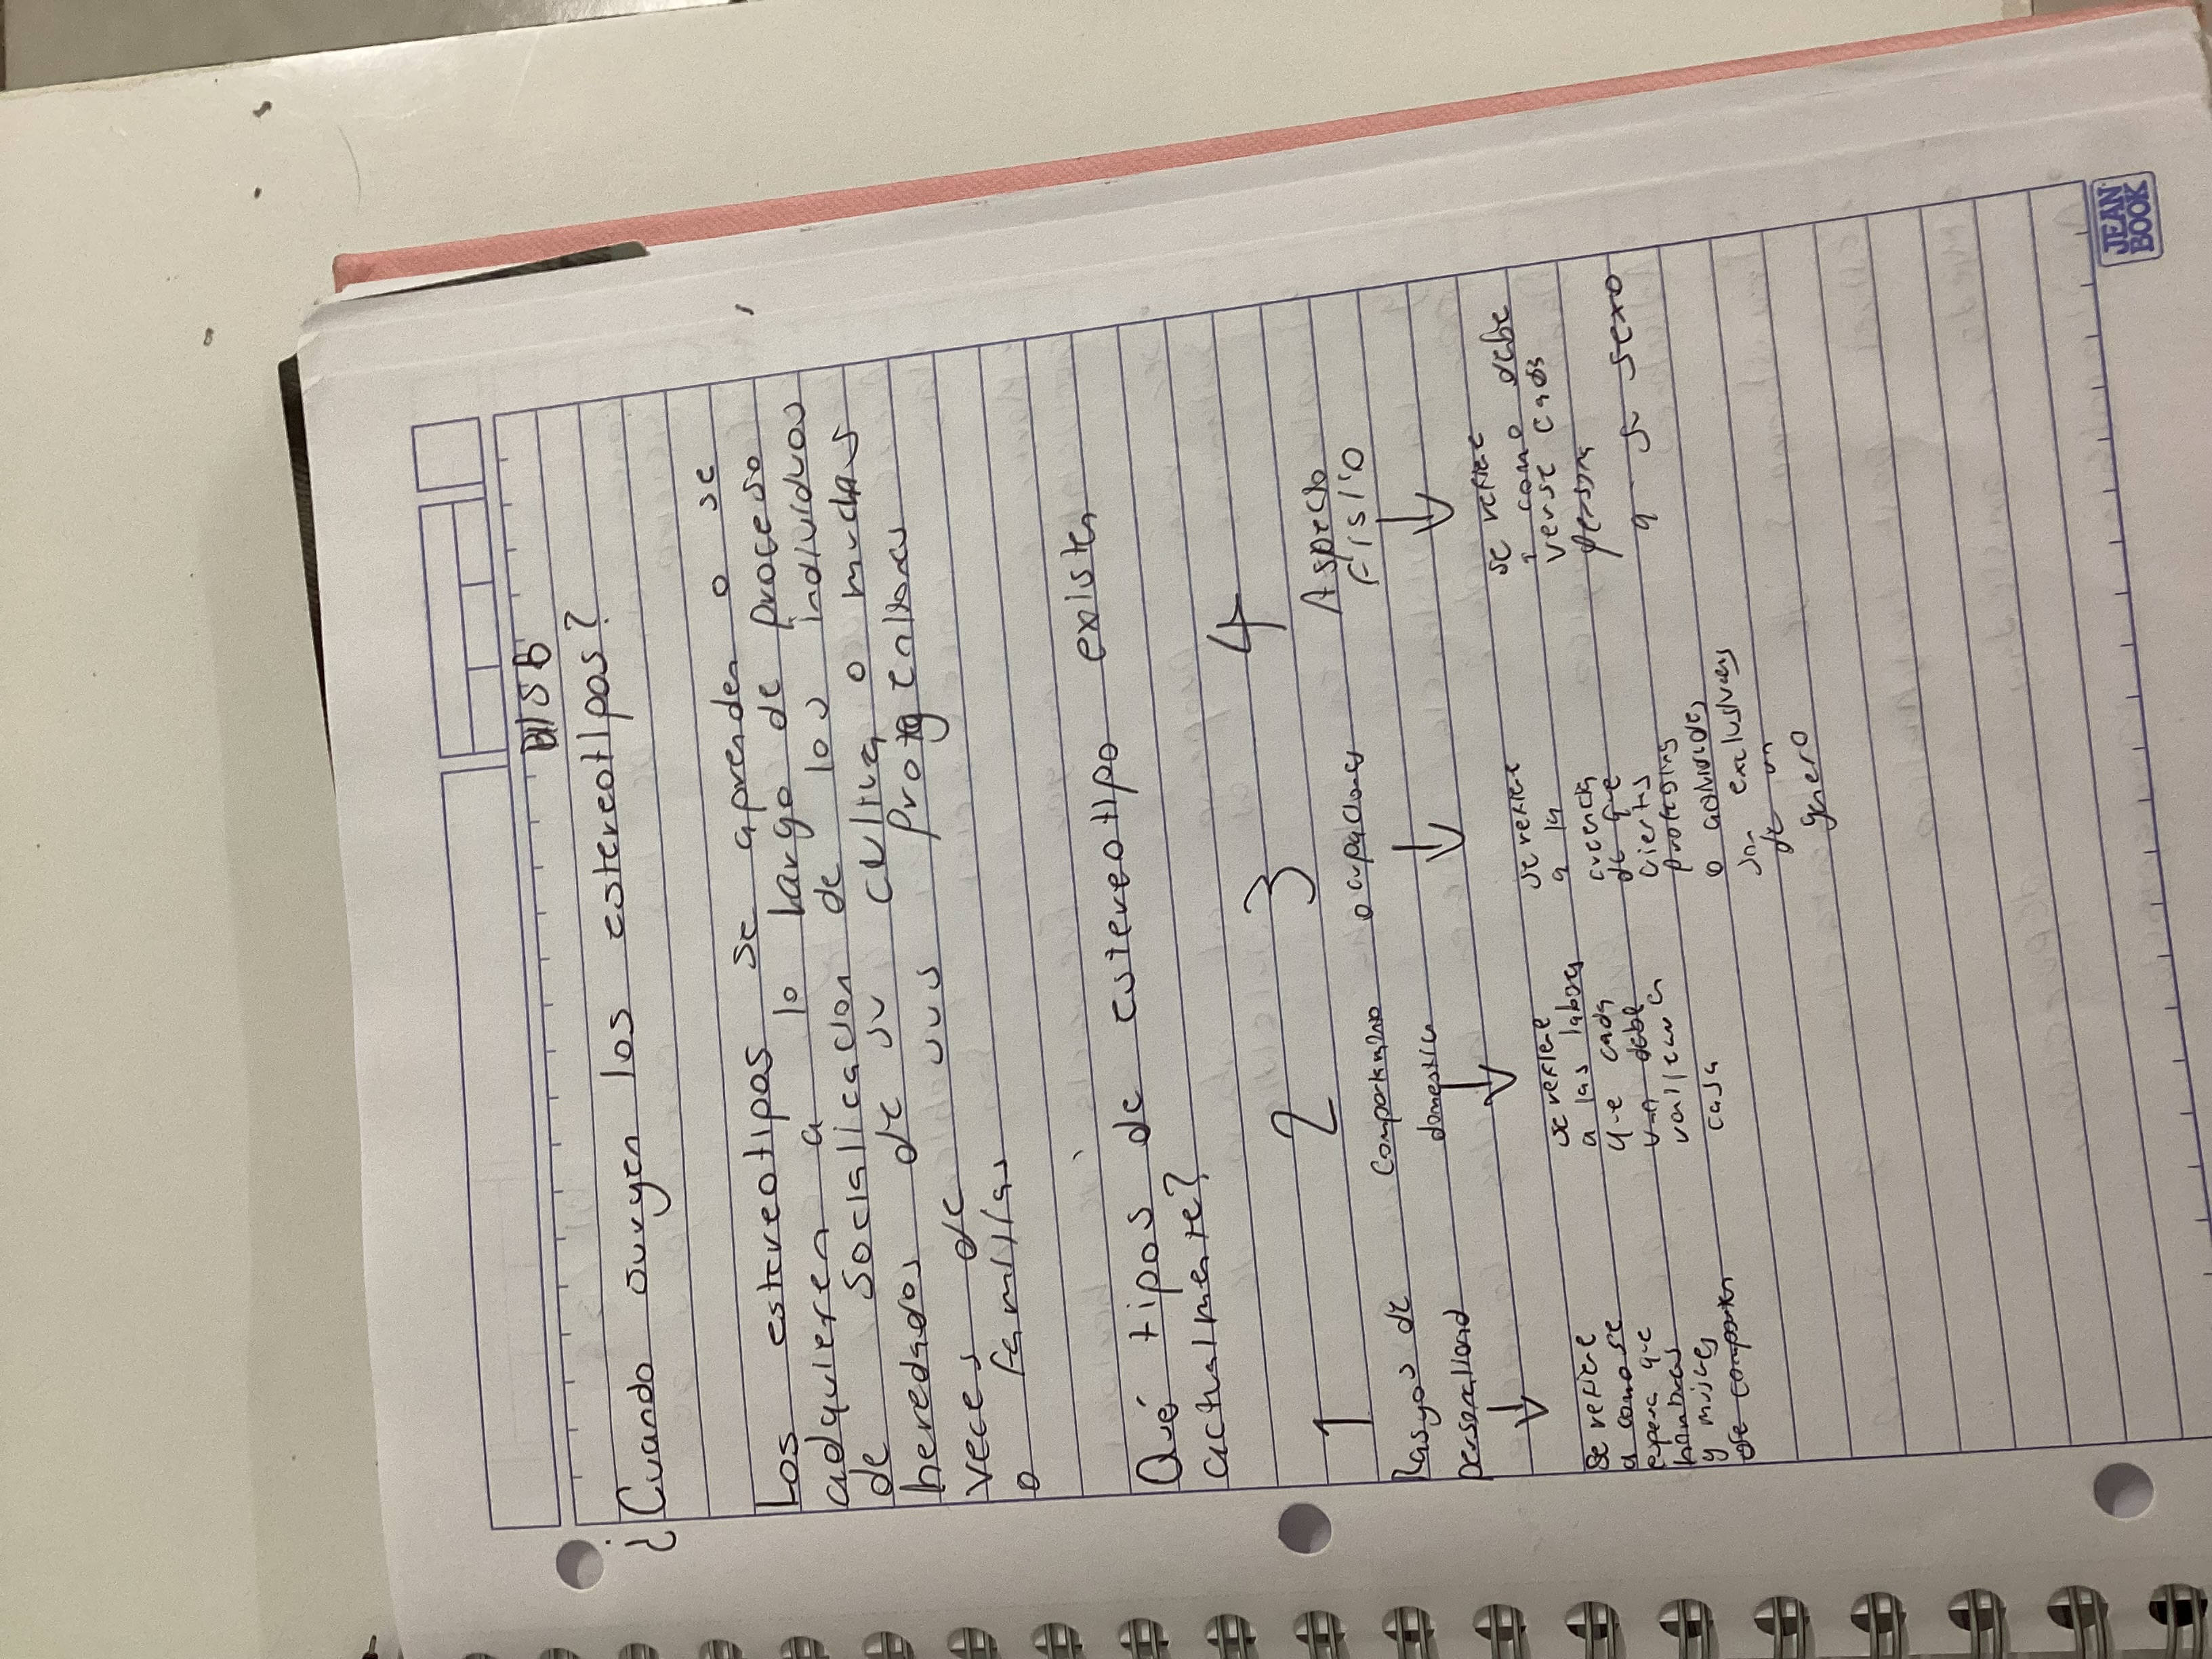 BISB
¿Cuando surgen los estereotipos?
Los estereotipos se aprenden o se
adquieren a lo largo de proceso
de socialicacion de los individuos
heredados de su cultura o muchas
veces de sus protog enitores
o familias
Qué tipos de estereotipo existen
actualmente?
1 2 3 4
Rasgos de
personalidad
se refiere
a como se
espera que
hombres
y mujeres
se comporten
comportamiento
domestico
se refiere
a las labores
que cada
uno debe
realizar en
casa
ocupaciones
se refiere
a la
creencia
de que
ciertas
profesions
o actividades
son exclusivas
de un
genero
Aspecto
Fisio
se refiere
a como debe
verse cada
persona
a su sexo
JEAN
BOOK